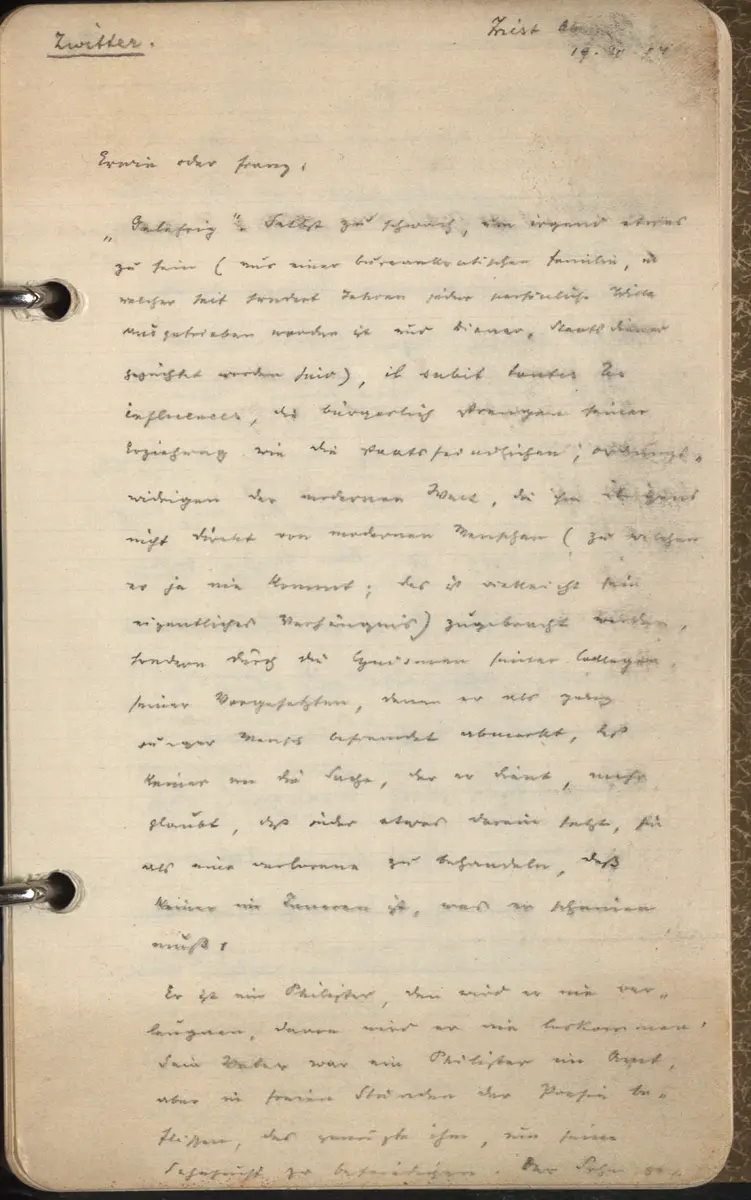 Zwitter.
Erwin oder Franz:
"Gelehrig". Selbst zu schwach, um irgend etwas
zu sein (aus einer bureaukratischen Familie, in
welcher seit hundert Jahren jeder persönliche Wille
ausgetrieben worden ist und Diener, Staatsdiener
gezüchtet worden sind), il subit toutes les
influences, die bürgerlich strengen seiner
Erziehung wie die staatsfeindlichen, ordnungs-
widrigen der modernen Welt, die ihm übrigens
nicht direkt von modernen Menschen (zu welchen
er ja nie kommt; das ist vielleicht sein
eigentliches Verhängnis) zugebracht werden,
sondern durch die Cynismen seiner Collegen,
seiner Vorgesetzten, denen er als
junger Mensch befremdet abmerkt, daß
keiner an die Sache, der er dient, mehr
glaubt, daß jeder etwas darein setzt, sie
als eine verlorene zu behandeln, daß
keiner im Inneren ist, was er scheinen
muß.
Er ist ein Philister, den wird er nie ver-
leugnen, davon wird er nie loskommen.
Sein Vater war ein Philister im Amt,
aber in freien Stunden der Poesie be-
flissen, das genügte ihm, um seine
Sehnsucht zu befriedigen. Der Sohn